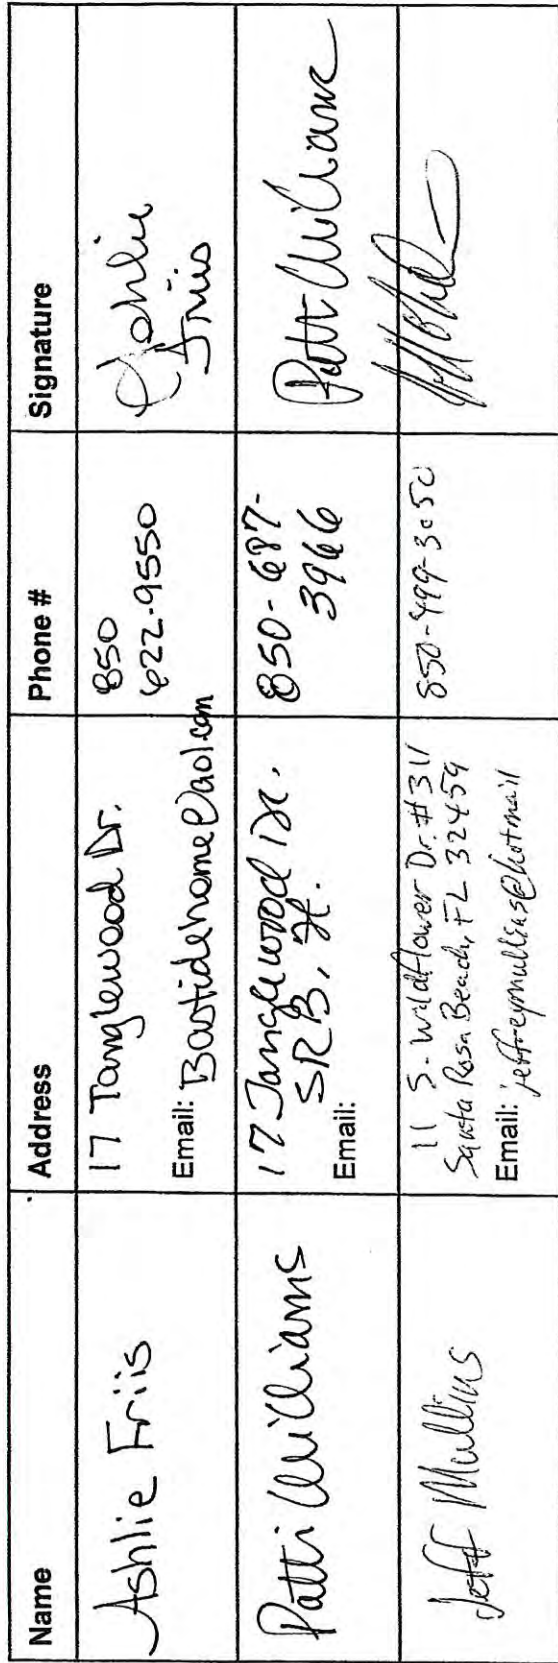 Name Address Phone # Signature
Ashlie Friis
17 Tanglewood Dr.
Email: Bastidehome@aol.com
850
622-9550
Ashlie
Friis
Patti Williams
17 Tanglewood Dr.
SRB, fl.
Email:
850-687-
3966
Patti Williams
Jeff Mullins
11 S. Wildflower Dr. #311
Santa Rosa Beach, FL 32459
Email: jeffreymullins@hotmail
850-499-3050